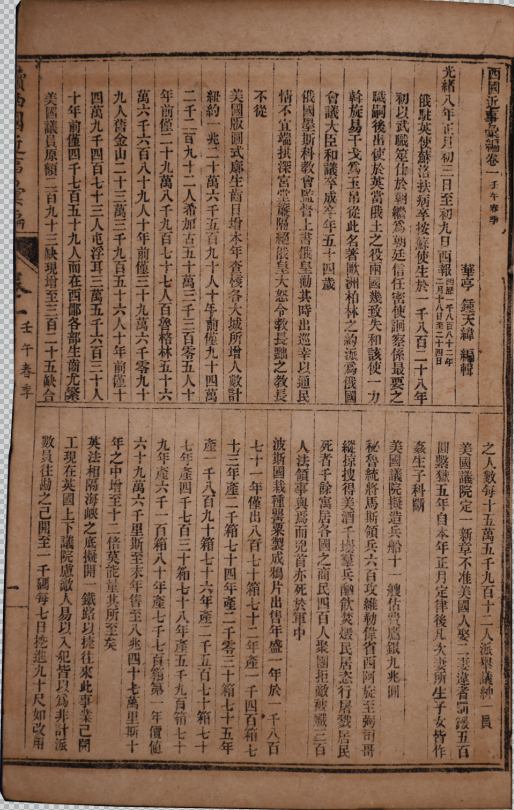 西國近事彙編卷一 壬午春季
華亭 鍾天緯 編輯
光緒八年正月初三日至初九日西報 西曆一千八百八十二年二月十八日至二十四日
俄駐英使蘇洛扶病卒按蘇使生於一千八百二十八年
初以武職筮仕於朝繼爲朝廷信任密使詗察係最要之
職嗣後出使於英當俄土之役兩國幾致失和該使一力
斡旋易干戈爲玉帛從此名著歐洲柏林之約派爲俄國
會議大臣和議卒成卒年五十四歲
俄國學斯科教會監督上書俄皇勸其時出巡幸以通民
情不宜端拱深宮堂廉隔絕俄皇大怒令教長黜之教長
不從
美國版圖式廓生齒日增本年查核各大城所增人數計
紐約一兆二十萬六千五百九十人十年前僅九十四萬
二千二百九十二人希加古五十萬三千三百零五人十
年前僅二十九萬八千九百七十七人百魯格林五十六
萬六千六百八十九人十年前僅三十九萬六千零九十
九人舊金山二十三萬三千九百五十六人十年前僅十
四萬九千四百七十三人屯浮耳三萬五千六百三十人
十年前僅四千七百五十九人而在西鄙各部生齒尤繁
美國議員原額二百九十三缺現增至三百二十五缺合
之人數每十五萬五千九百十二人派舉議紳一員
美國議院定一新章不准美國人娶二妻違者罰鍰五百
圓繫獄五年自本年正月定律後凡次妻所生子女皆作
姦生子科斷
美國議院擬造兵船十一艘估費應銀九兆圓
秘魯統將馬斯領兵六百攻維勒偉省西阿旋至弼司哥
縱掠搜得美酒千壜羣兵酗飲焚燬民居恣行屠戮居民
死者千餘寓居各國之商民四百人聚團拒敵被戕三百
人法領事與焉而兇酋亦死於軍中
波斯國栽種罌粟製成鴉片出售年盛一年於一千八百
七十一年僅出八百七十箱七十二年產一千四百箱七
十三年產二千箱七十四年產二千零三十箱七十五年
產一千八百九十箱七十六年產二千五百七十箱七十
七年產四千七百三十箱七十八年產五千九百箱七十
九年產六千一百箱八十年產七千七百箱第一年價值
六十九萬六千里斯至末年售至八兆四十七萬里斯十
年之中增至十二倍莫能量其所至矣
英法相隔海峽之底擬開一鐵路以捷往來此事業己開
工現在英國上下議院慮敵人易以入犯皆以爲非計派
數員往勘之己開至一千碼每七日挖進九十尺如改用
壬午春季
一